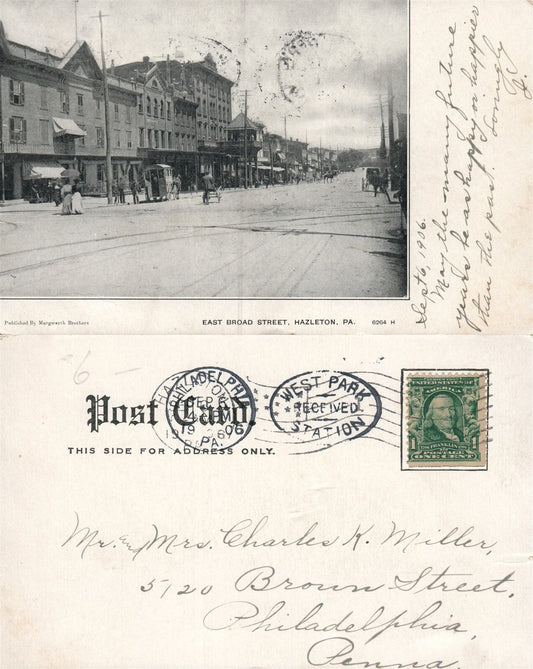 Sept 6, 1906.
May the many future
yours be as happy or happier
than the past. Lovingly
Published By Margwarth Brothers
EAST BROAD STREET, HAZLETON, PA. 6264 H
6
Post Card.
THIS SIDE FOR ADDRESS ONLY.
PHILADELPHIA
SEP 6
1906
PA.
WEST PARK
RECEIVED
STATION
UNITED STATES OF
AMERICA
1 1
POSTAGE
ONE CENT
Mr. and Mrs. Charles K. Miller,
5120 Brown Street,
Philadelphia,
Penna.